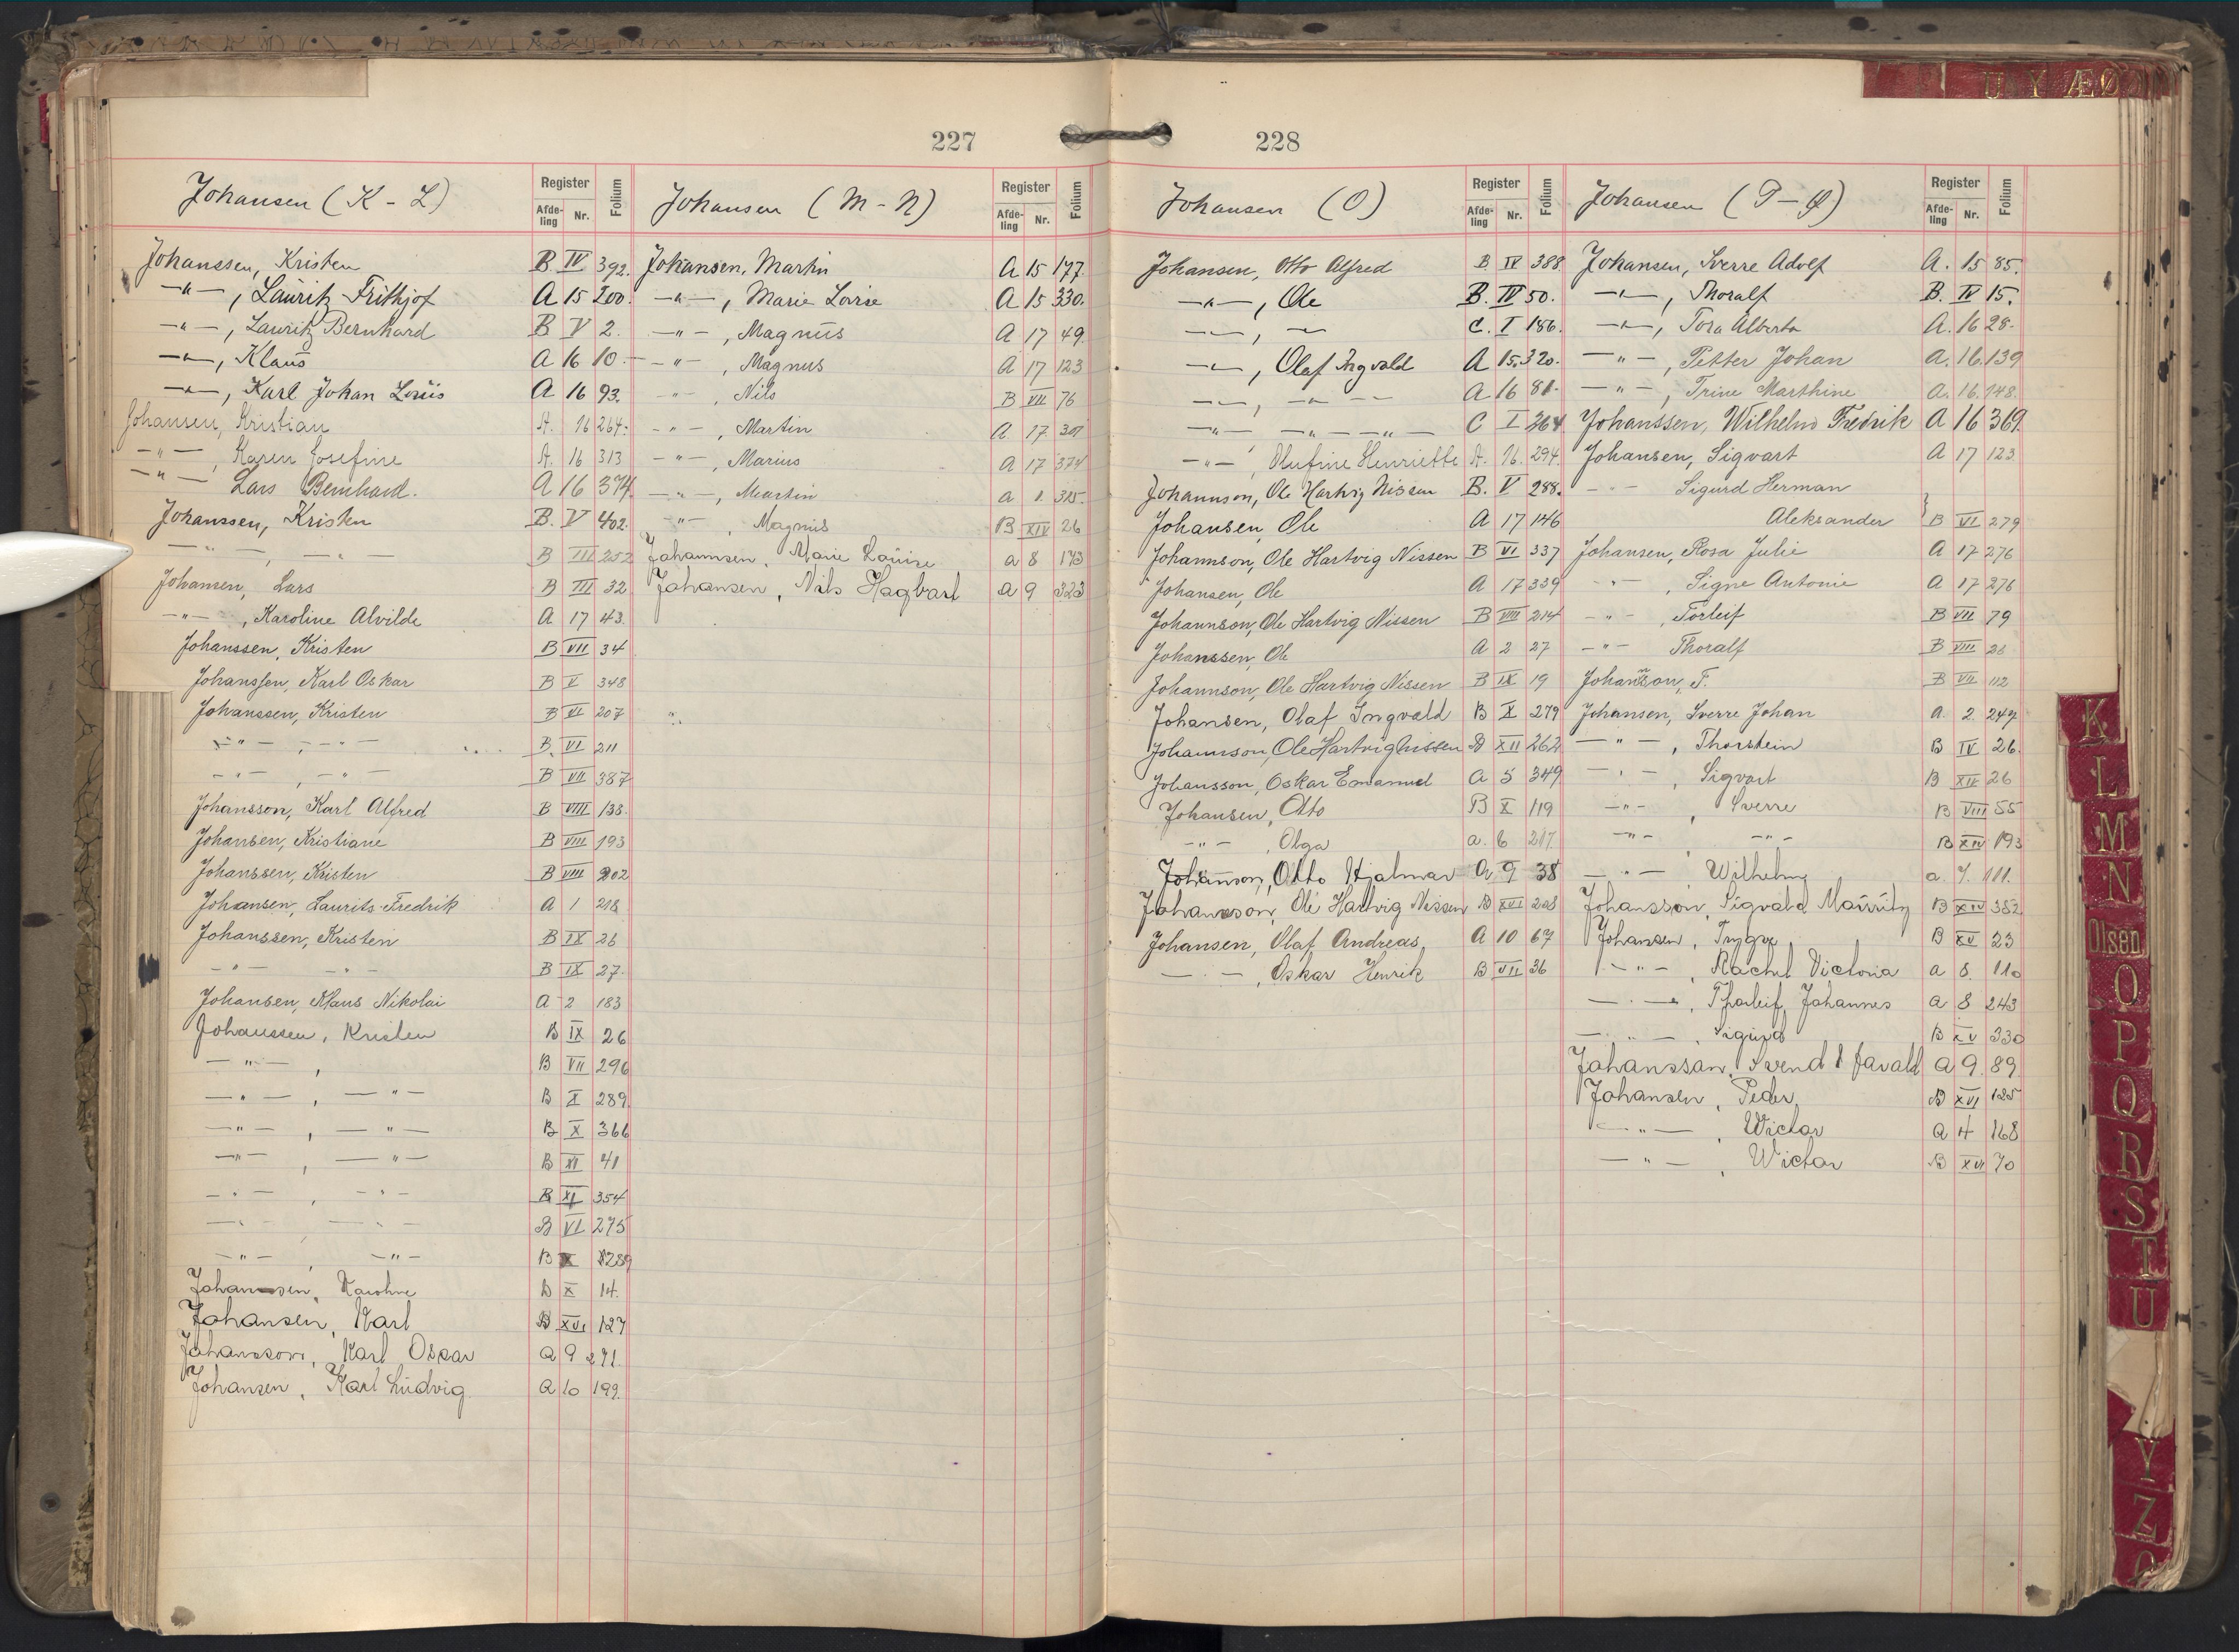 U Y Æ Ø
227
Johansen (K - L)
Register
Afdeling Nr. Folium
Johanssen, Kristen B IV 392.
—"—, Lauritz Frithjof A 15 200.
—"—, Lauritz Bernhard B V 2.
—"—, Klaus A 16 10.
—"—, Karl Johan Louis A 16 93.
Johansen, Kristian A. 16 264.
—"—, Karen Josefine A. 16 313
—"— Lars Bernhard. A 16 374
Johanssen, Kristen B. V 402.
—"—, —"— B III 252
Johansen, Lars B III 32
—"—, Karoline Alvilde A 17 43.
Johanssen, Kristen B VII 34
Johanssen, Karl Oskar B V 348
Johanssen, Kristen B VI 207
—"—, —"— B. VI 211
—"—, —"— B VII 387
Johansson, Karl Alfred B VIII 138.
Johansen, Kristiane B VIII 193
Johanssen, Kristen B VIII 202
Johansen, Laurits Fredrik A 1 218
Johanssen, Kristen B IX 26
—"— —"— B IX 27.
Johansen, Klaus Nikolai A 2 183
Johanssen, Kristen B IX 26
—"—, B VII 296
—"—, —"— B X 289.
—"—, —"— B X 366
—"—, —"— B XI 41
—"—, —"— B XI 354
—"— —"— B VI 275
—"—, —"— B X 289
Johannsen, Karoline B X 14.
Johansen, Karl B XVI 127
Johansson, Karl Oskar a 9 271.
Johansen, Karl Ludvig a 10 199.
Johansen (M - N)
Register
Afdeling Nr. Folium
Johansen, Martin A 15 177.
—"—, Marie Lovise A 15 330.
—"—, Magnus A 17 49.
—"—, Magnus A 17 123
—"—, Nils B VII 76
—"—, Martin A 17 301
—"—, Marius A 17 374
—"—, Martin a 1 315.
—"—, Magnus B XIV 26
Johannsen, Marie Louise a 8 173
Johansen, Nils Hagbart a 9 323
228
Johansen (O)
Register
Afdeling Nr. Folium
Johansen, Otto Alfred B IV 388
—"—, Ole B. IV 50.
—"—, —"— C. I 186.
—"—, Olaf Ingvald A 15. 320.
—"—, —"— —"— A 16 81.
—"— —"— —"— C I 264
—"—, Olufine Henriette A. 16. 294.
Johannson, Ole Hartvig Nissen B. V 288.
Johansen, Ole A 17 146
Johannson, Ole Hartvig Nissen B VI 337
Johansen, Ole A 17 339
Johannson, Ole Hartvig Nissen B VIII 214
Johanssen, Ole A 2 27
Johannson, Ole Hartvig Nissen B IX 19
Johansen, Olaf Ingvald B X 279
Johannson, Ole Hartvig Nissen B XII 262
Johansson, Oskar Emanuel a 5 349
Johansen, Otto B X 119
—"—, Olga a. 6 217.
Johannson, Otto Hjalmar a 9 38
Johansson, Ole Hartvig Nissen B XVI 208
Johansen, Olaf Andreas, A 10 67
—"—, Oskar Henrik B VII 36
Johansen (P - Ø)
Register
Afdeling Nr. Folium
Johansen, Sverre Adolf A. 15 85.
—"—, Thoralf B. IV 15.
—"—, Tora Alberta A. 16 28.
—"—, Petter Johan A. 16. 139
—"—, Trine Marthine A. 16. 148.
Johanssen, Wilhelm Fredrik A 16 369.
Johansen, Sigvart A 17 123.
—"— Sigurd Herman
Aleksander B VI 279
Johansen, Rosa Julie A 17 276
—"—, Signe Antonie A 17 276
—"—, Torleif B VII 79
—"— Thoralf B VIII 28
Johannson, T. B VII 112
Johansen, Sverre Johan a. 2. 249
—"—, Thorstein B IV 26.
—"—, Sigvart B XII 26
—"—, Sverre B VIII 55
—"— —"— B XIV 193
—"—, Wilhelm a. 7. 111.
Johansson, Sigvald Mauritz B XIV 352
Johansen, Trygve B XV 23
—"—, Rachel Victoria a 8. 110
—"—, Thorleif Johannes a 8 243
—"—, Sigurd B XV 330
Johansson, Svend a 9. 89.
Johansen, Peder, B XVI 125
—"—, Victor a 4 168
—"—, Victor B XVI 70
K
L
M
N
Olsen
O
P
Q
R
S
T
U
Y
Z